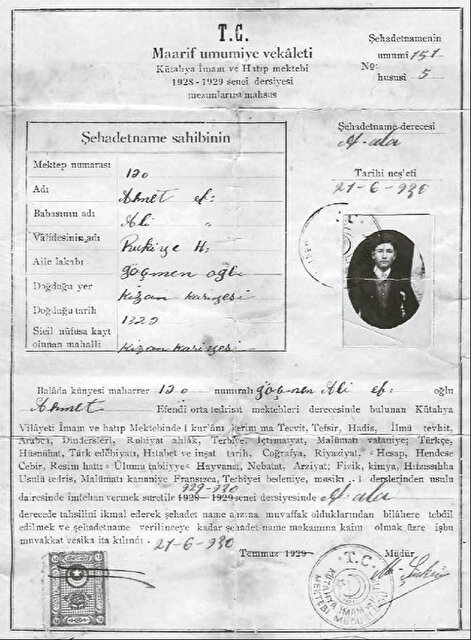 T.C.
Maarif umumiye vekâleti
Kütahya İmam ve Hatıp mektebi
1928 - 1929 senei dersiyesi
mezunlarına mahsus
Şehadetnamenin
umumî 151
No:
hususî 5
Şehadetname derecesi
A-ala
Tarihi neş'eti
21-6-930
Şehadetname sahibinin
Mektep numarası 120
Adı Ahmet ef:
Babasının adı Ali "
Vâlidesinin adı Rukiye H:
Aile lakabı Göçmen oğlu
Doğduğu yer Kızan kariyesi
Doğduğu tarih 1320
Sicil nüfusa kayt
olunan mahalli Kızan kariyesi
Balâda künyesi muharrer 120 numaralı Göçmen Ali ef: oğlu
Ahmet Efendi orta tedrisat mektebleri derecesinde bulunan Kütahya
Vilâyeti İmam ve hatıp Mektebinde kur'ânı kerim ma Tecvit, Tefsir, Hadis, İlmü tevhit,
Arabca, Dindersleri, Ruhiyat ahlâk, Terbiye, İçtimaiyat, Malûmatı vataniye; Türkçe,
Hüsnühat, Türk edebiyatı, Hitabet ve inşat tarih, Coğrafya, Riyaziyat, Hesap, Hendese
Cebir, Resim hattı Ulûmu tabiiyye Hayvanat, Nebatat, Arziyat; Fizik, kimya, Hıfzıssıhha
Usulü tedris, Malûmatı kanuniye Fransızca, Terbiyei bedeniye, musıki derslerinden usulu
dairesinde imtehan vermek suretile 1928 - 1929 929-930 senei dersiyesinde A-ala
derecede tahsilini ikmal ederek şehadet name ahzına muvaffak olduklarından bilâhere tebdil
edilmek ve şehadetname verilinceye kadar şehadet name makamına kaim olmak üzre işbu
muvakkat vesika ita kılındı. 21-6-930
Temmuz 1929
Müdür,
T.C.
KÜTAHYA İMAM VE HATIP
MEKTEBİ MÜDÜRLÜĞÜ